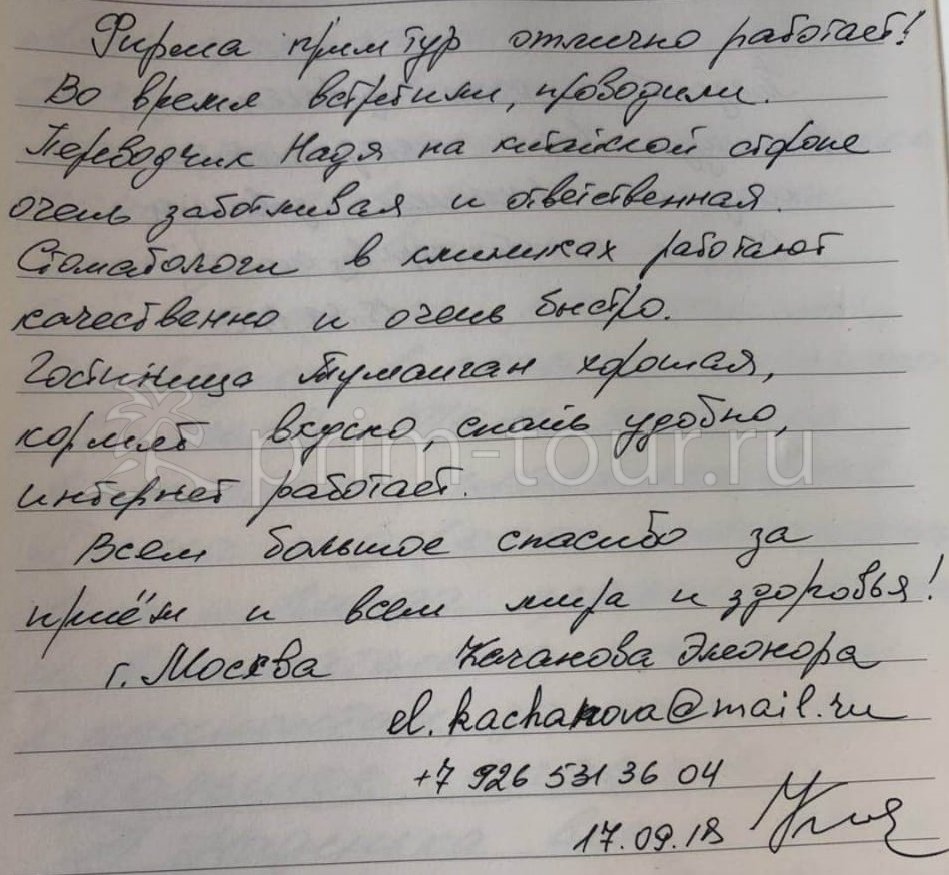 Фирма прим тур отлично работает!
Во время встретили, проводили.
Переводчик Надя на китайской стороне
очень заботливая и ответственная.
Стоматологи в клиниках работают
качественно и очень быстро.
Гостиница Туманган хорошая,
кормят вкусно, спать удобно,
prim-tour.ru
интернет работает.
Всем большое спасибо за
приём и всем мира и здоровья!
г. Москва Качанова Элеонора
el.kachanova@mail.ru
+7 926 531 36 04
17.09.18